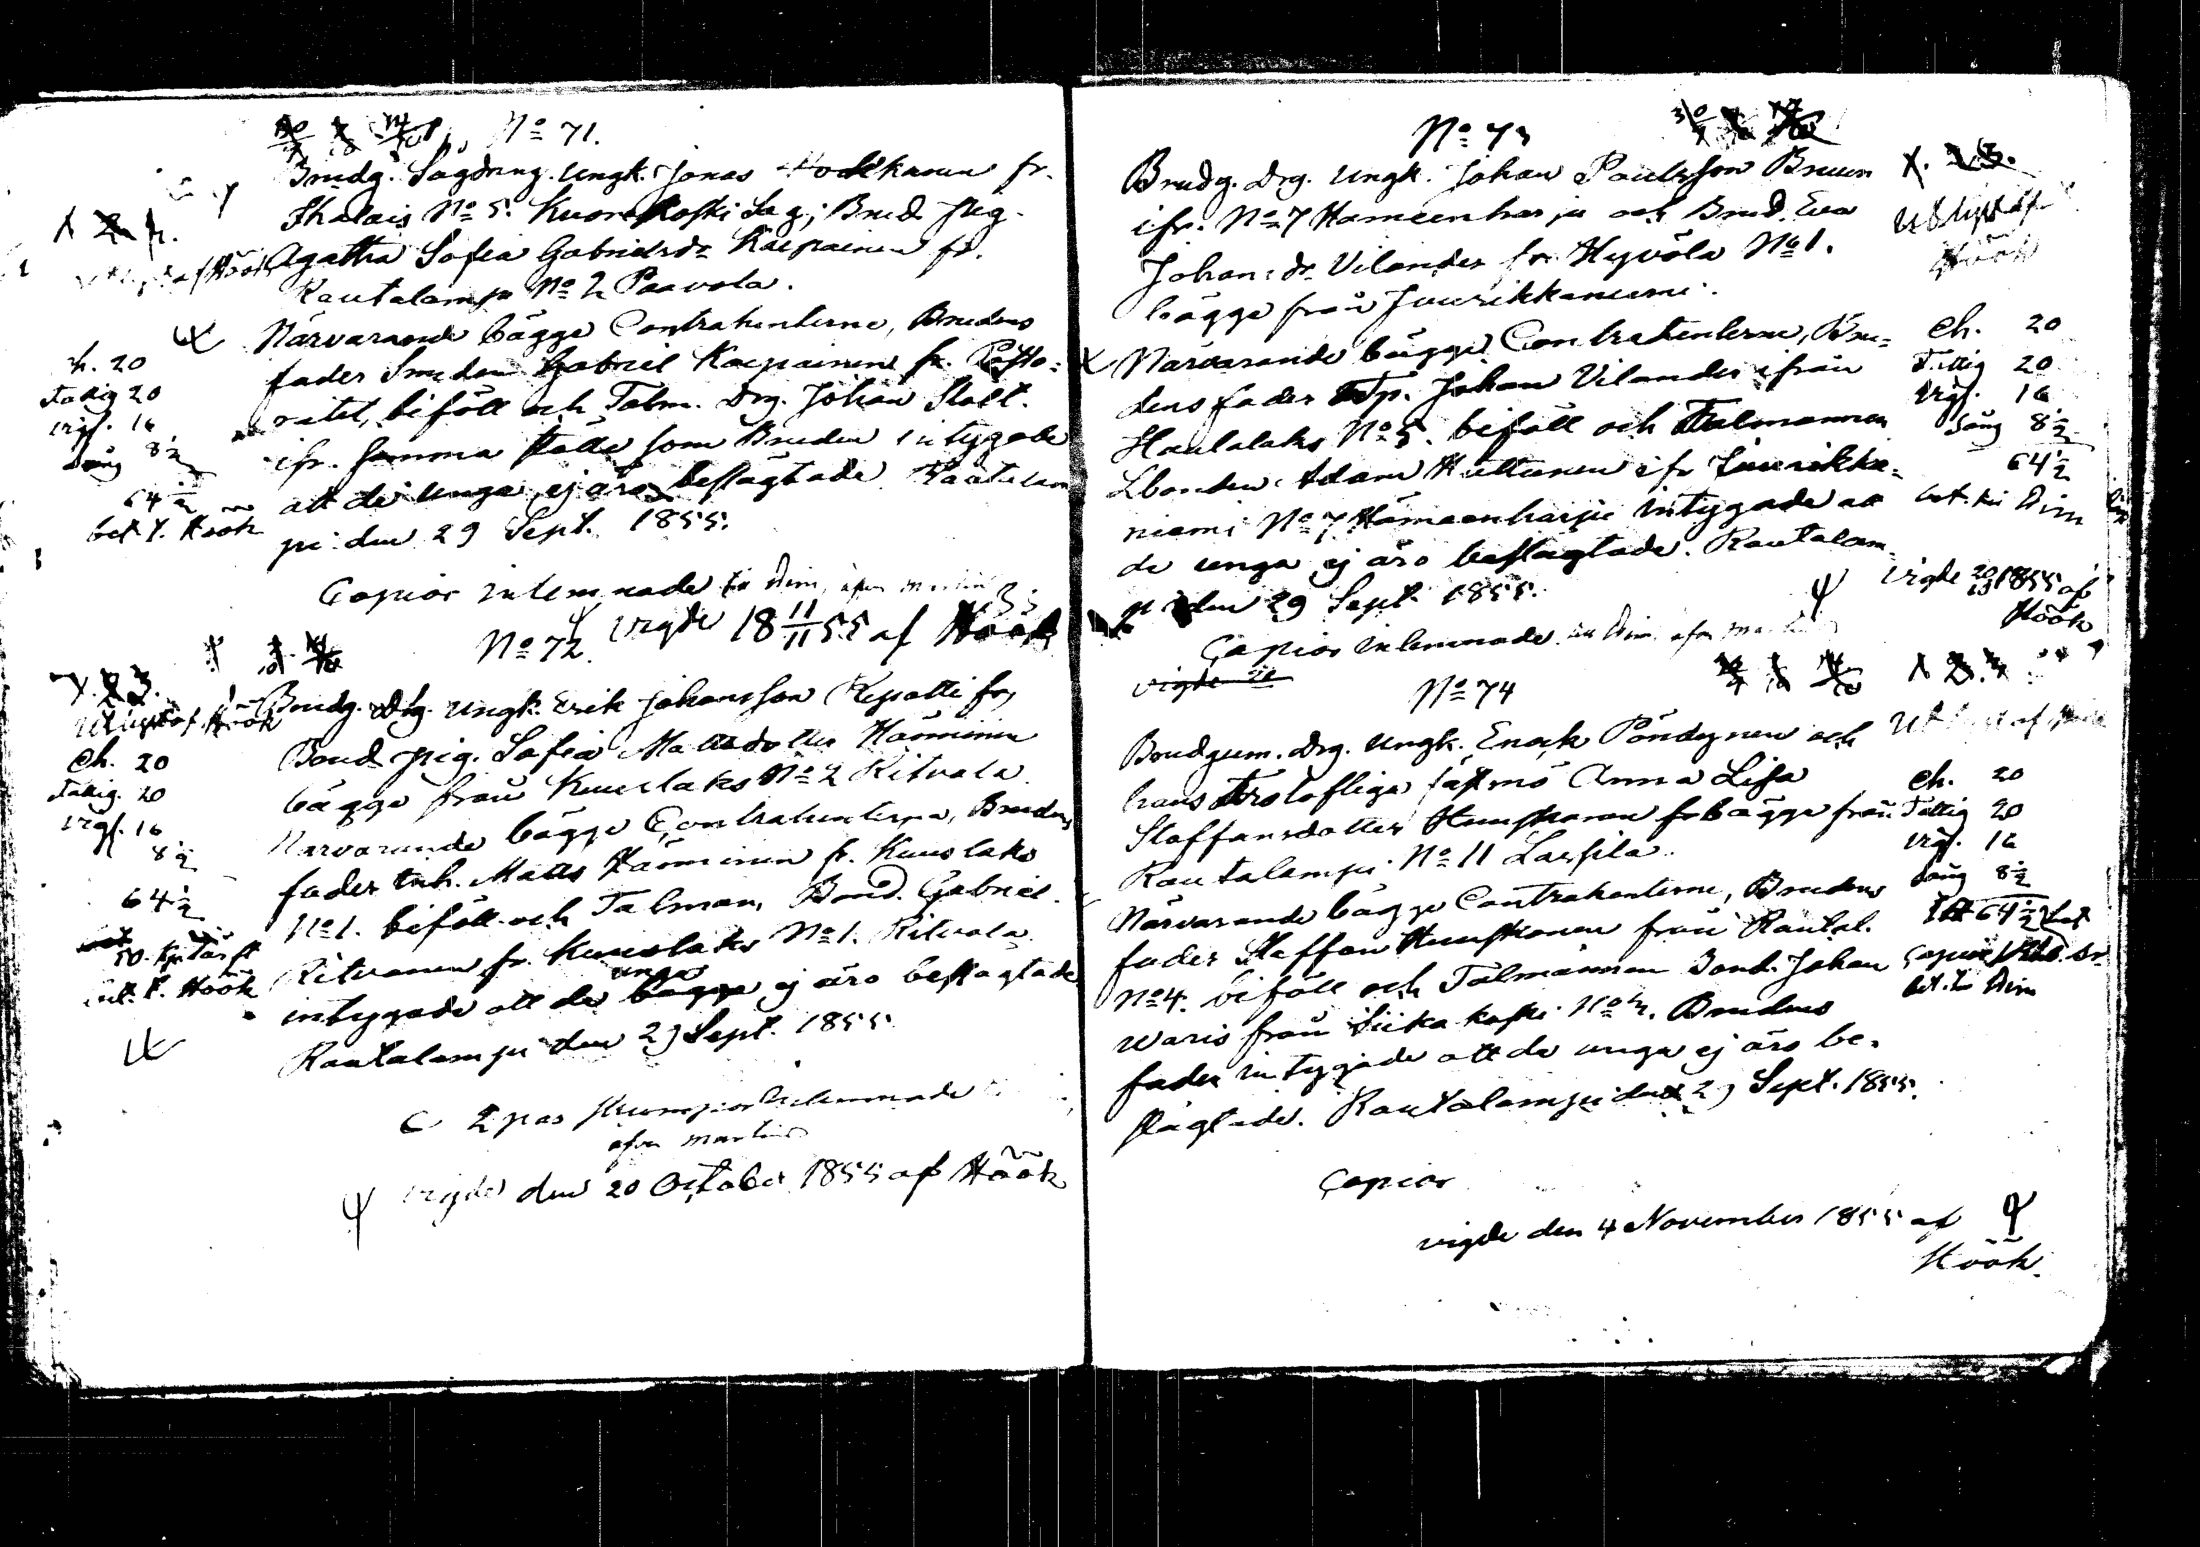 No 71.
Brudg. Sågdräng. Ungk. Jonas fr.
No 5. Kuonkoski Sag; Brud Pig.
Agatha Sofia Gabrielsdr Kaipainen fr.
Rautalampi No 2 Paavola.
Närvarande bägge Contrahenterne, Brudens
fader Smeden Gabriel Kaipainen fr. Pasto-
ratet, biföll och Talm. Drg. Johan Stolt.
ifr. samma ställe som Bruden intygade
att de unga ej äro beslägtade. Rautalam
pi den 29 Sept. 1855.
Copior inlemnade
vigde 18 11/11 55 af Höök
X 2
utlyst af Höök
Ch. 20
Fattig 20
vigs. 16
Sång 8 1/2
64 1/2
bet. t. Höök
No 72.
Brudg. Drg. Ungk. Erik Johansson Repatti fr,
Brud pig. Sofia Mattsdotter Hänninen
bägge från Kuuslaks No 2 Ritvala.
Närvarande bägge Contrahenterna, Brudens
fader Inh. Matts Hänninen fr. Kuuslaks
No 1. biföll och Talman, Bond. Gabriel
Ritvanen fr. Kuuslaks No 1. Ritvala
intygade att de unga ej äro beslägtade
Rautalampi den 29 Sept. 1855
X. 2 3.
utlyst af Höök
Ch. 20
Fattig. 20
vigs. 16
8 1/2
64 1/2
t. Höök
2 par inlemnade
vigde den 20 October 1855 af Höök
No 73
Brudg. Drg. Ungk. Johan Paulsson Bruun
ifr. No 7 Hämeenharju och Brud. Eva
Johans dr Vilander fr. Hyvölä No 1.
bägge från Juurikkaniemi.
Närvarande bägge Contrahenterne, Bru-
dens fader Johan Vilander ifrån
Hanlalaks No 5. biföll och Talmannen
Lbonden Adam Huttunen ifr Juurikka-
niemi No 7 Hämeenharju intygade att
de unga ej äro beslägtade. Rautalam-
pi den 29 Sept. 1855.
Copior inlemnade
vigde
X. 2 3.
utlyst af
Höök
Ch. 20
Fattig 20
vigs. 16
Sång 8 1/2
64 1/2
bet. till Dim
vigde 20/10 1855 af
Höök
No 74
Brudgum. Drg. Ungk. Enock Pöndynen och
hans Trolofliga fästmö Anna Lisa
Staffansdotter fr bägge från
Rautalampi No 11 Lassila.
Närvarande bägge Contrahenterne, Brudens
fader Staffan från Rautal.
No 4. biföll och Talmannen Bond. Johan
Waris från Siikakoski No 2. Brudens
fader intygade att de unga ej äro be-
slägtade. Rautalampi den 29 Sept. 1855.
Copior
vigde den 4 November 1855 af
Höök.
Ch. 20
Fattig 20
vigs. 16
Sång 8 1/2
64 1/2
bet. t. Dim